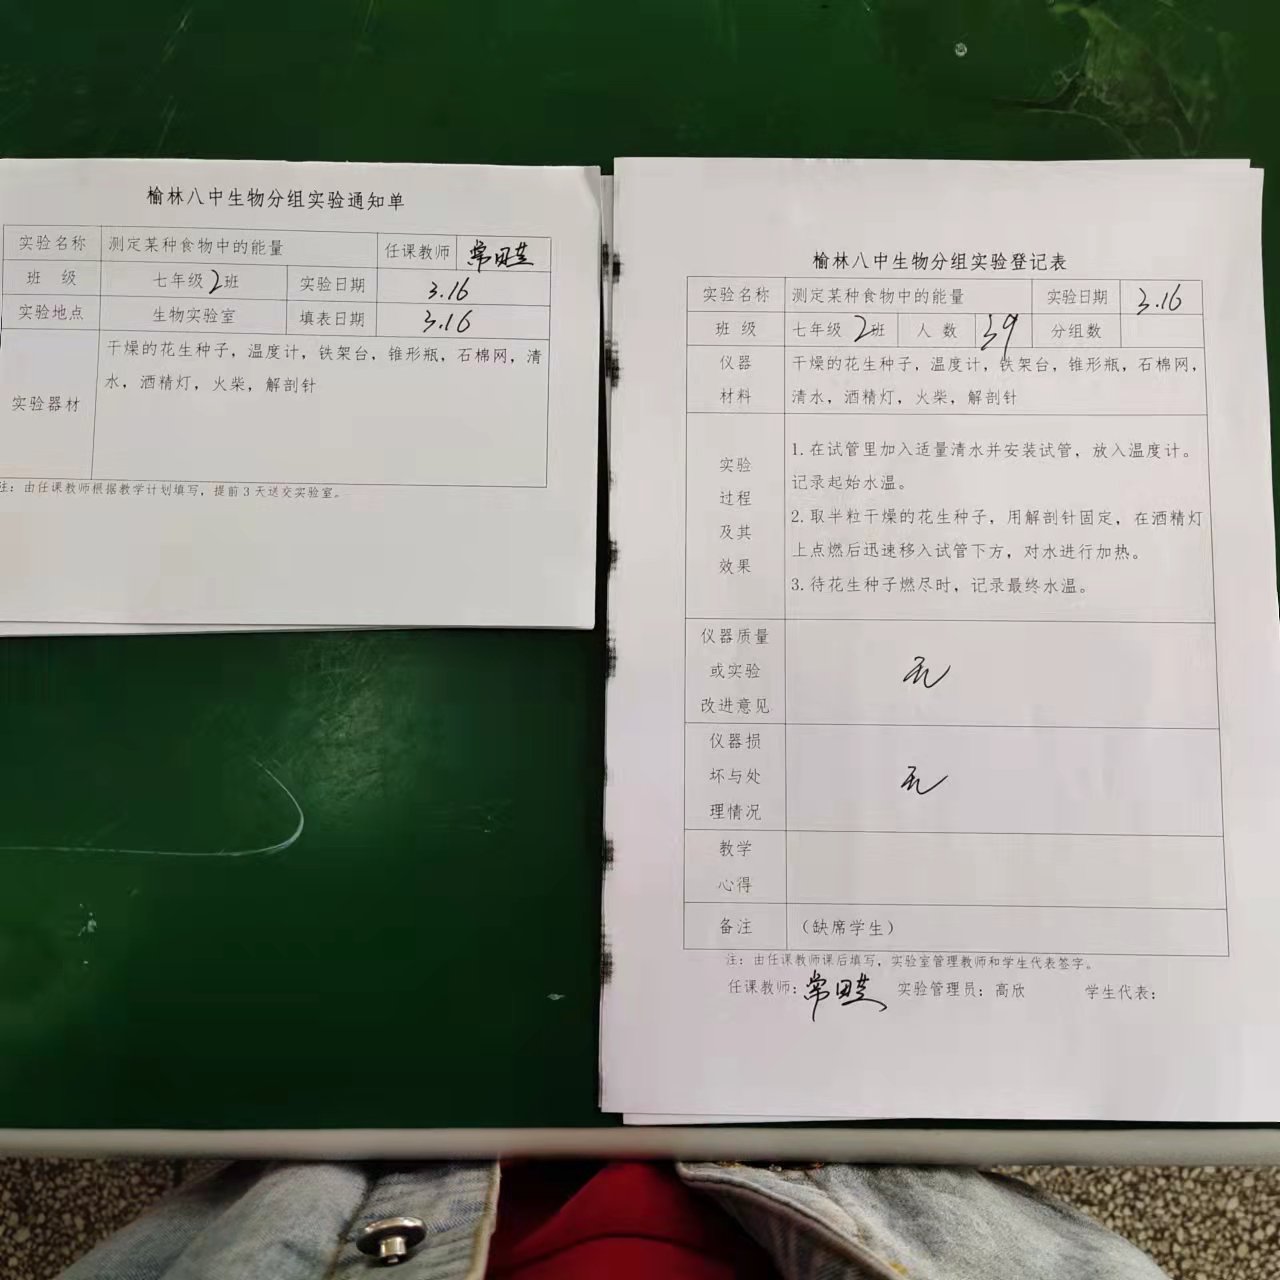 榆林八中生物分组实验通知单
实验名称 测定某种食物中的能量 任课教师 常田芝
班 级 七年级2班 实验日期 3.16
实验地点 生物实验室 填表日期 3.16
实验器材 干燥的花生种子，温度计，铁架台，锥形瓶，石棉网，清
水，酒精灯，火柴，解剖针
注：由任课教师根据教学计划填写，提前3天送交实验室。
榆林八中生物分组实验登记表
实验名称 测定某种食物中的能量 实验日期 3.16
班 级 七年级2班 人 数 39 分组数
仪器 干燥的花生种子，温度计，铁架台，锥形瓶，石棉网，
材料 清水，酒精灯，火柴，解剖针
实验
过程
及其
效果
1.在试管里加入适量清水并安装试管，放入温度计。
记录起始水温。
2.取半粒干燥的花生种子，用解剖针固定，在酒精灯
上点燃后迅速移入试管下方，对水进行加热。
3.待花生种子燃尽时，记录最终水温。
仪器质量
或实验 无
改进意见
仪器损
坏与处 无
理情况
教学
心得
备注 （缺席学生）
注：由任课教师课后填写，实验室管理教师和学生代表签字。
任课教师：常田芝 实验管理员：高欣 学生代表：